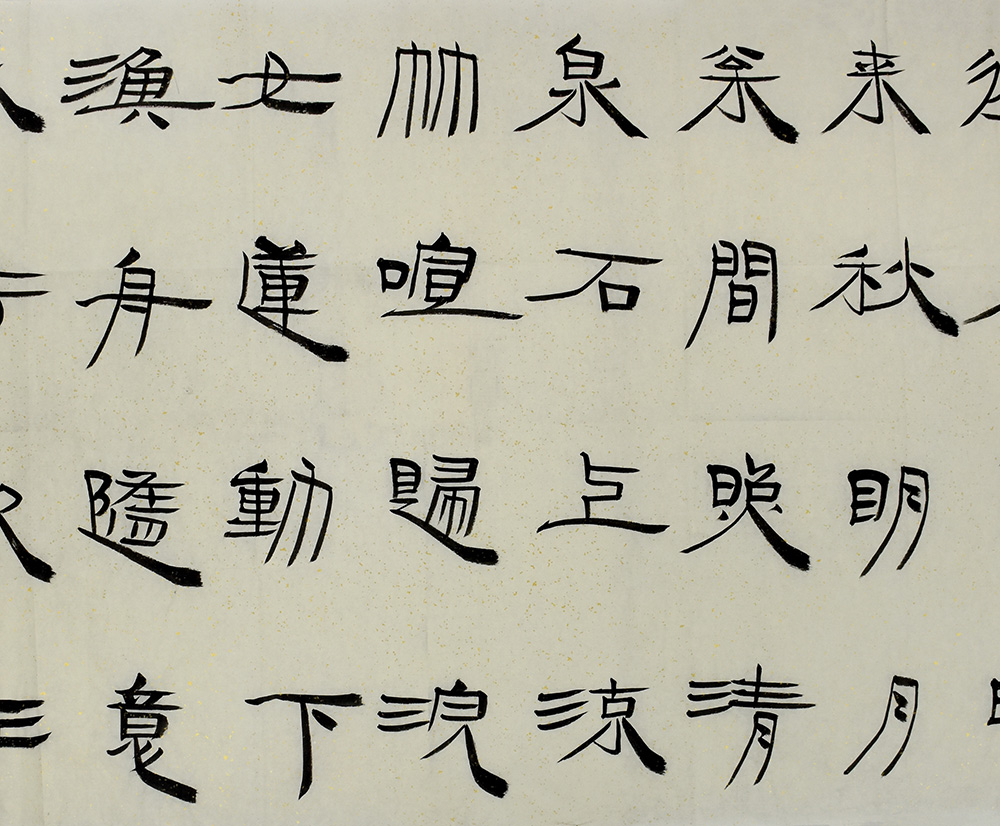 来秋明月
枀間照清
泉石上流
竹喧歸浣
女蓮動下
漁舟隨意